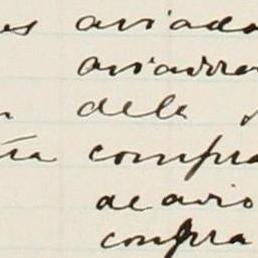 es aviado
aviarra
dele
ta compra
de avio
compra